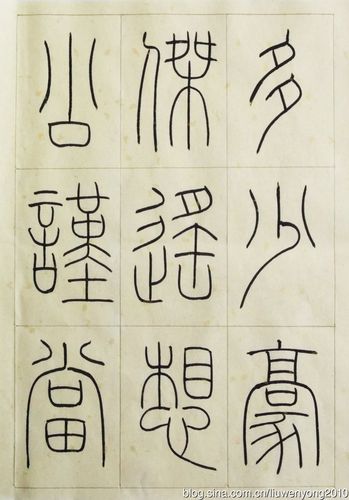 多少豪
傑遙想
公謹當
blog.sina.com.cn/liuwenyong2010